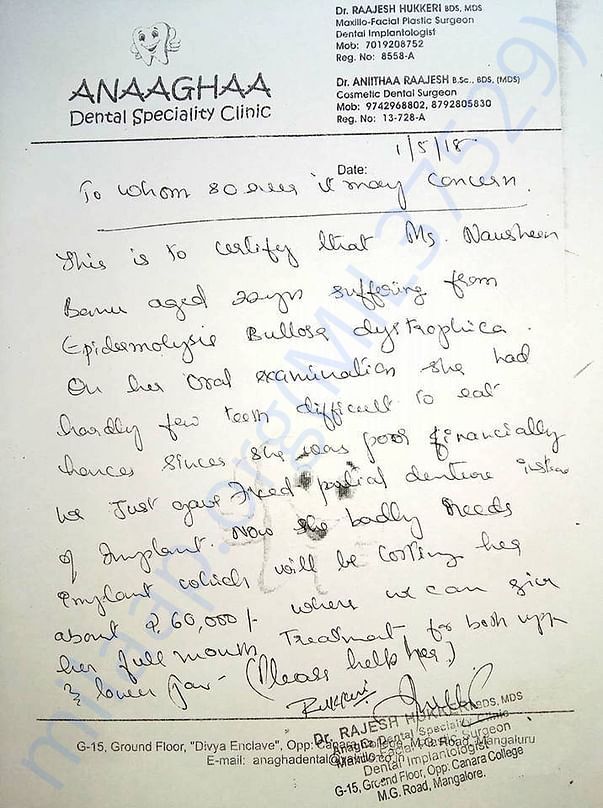 Dr. RAAJESH HUKKERI BDS, MDS
Maxillo-Facial Plastic Surgeon
Dental Implantologist
Mob: 7019208752
Reg. No: 8558-A
ANAAGHAA
Dental Speciality Clinic
Dr. ANIITHAA RAAJESH B.Sc., BDS, (MDS)
Cosmetic Dental Surgeon
Mob: 9742968802, 8792805830
Reg. No: 13-728-A
Date: 1/5/18
To whom so ever it may concern.
This is to certify that Ms. Nausheen
Banu aged suffering from
Epidermolysis Bullosa dystrophica.
On her oral examination she had
hardly few teeth difficult to eat
hences sinces she was poor financially
we Just gave fixed partial denture
of Implant. Now she badly needs
Implant which will be costing her
about 2,60,000/- where we can give
her full mouth Treatment for both upper
& lower jaw - (Please help her)
Dr. RAJESH HUKKERI BDS, MDS
Anagha Dental Speciality Clinic
Maxillo Facial Plastic Surgeon
Dental Implantologist
G-15, Ground Floor, Opp: Canara College
M.G. Road, Mangalore.
G-15, Ground Floor, "Divya Enclave", Opp: Canara College, M.G. Road, Mangaluru
E-mail: anaghadental@
milaap.org(MIL37529)